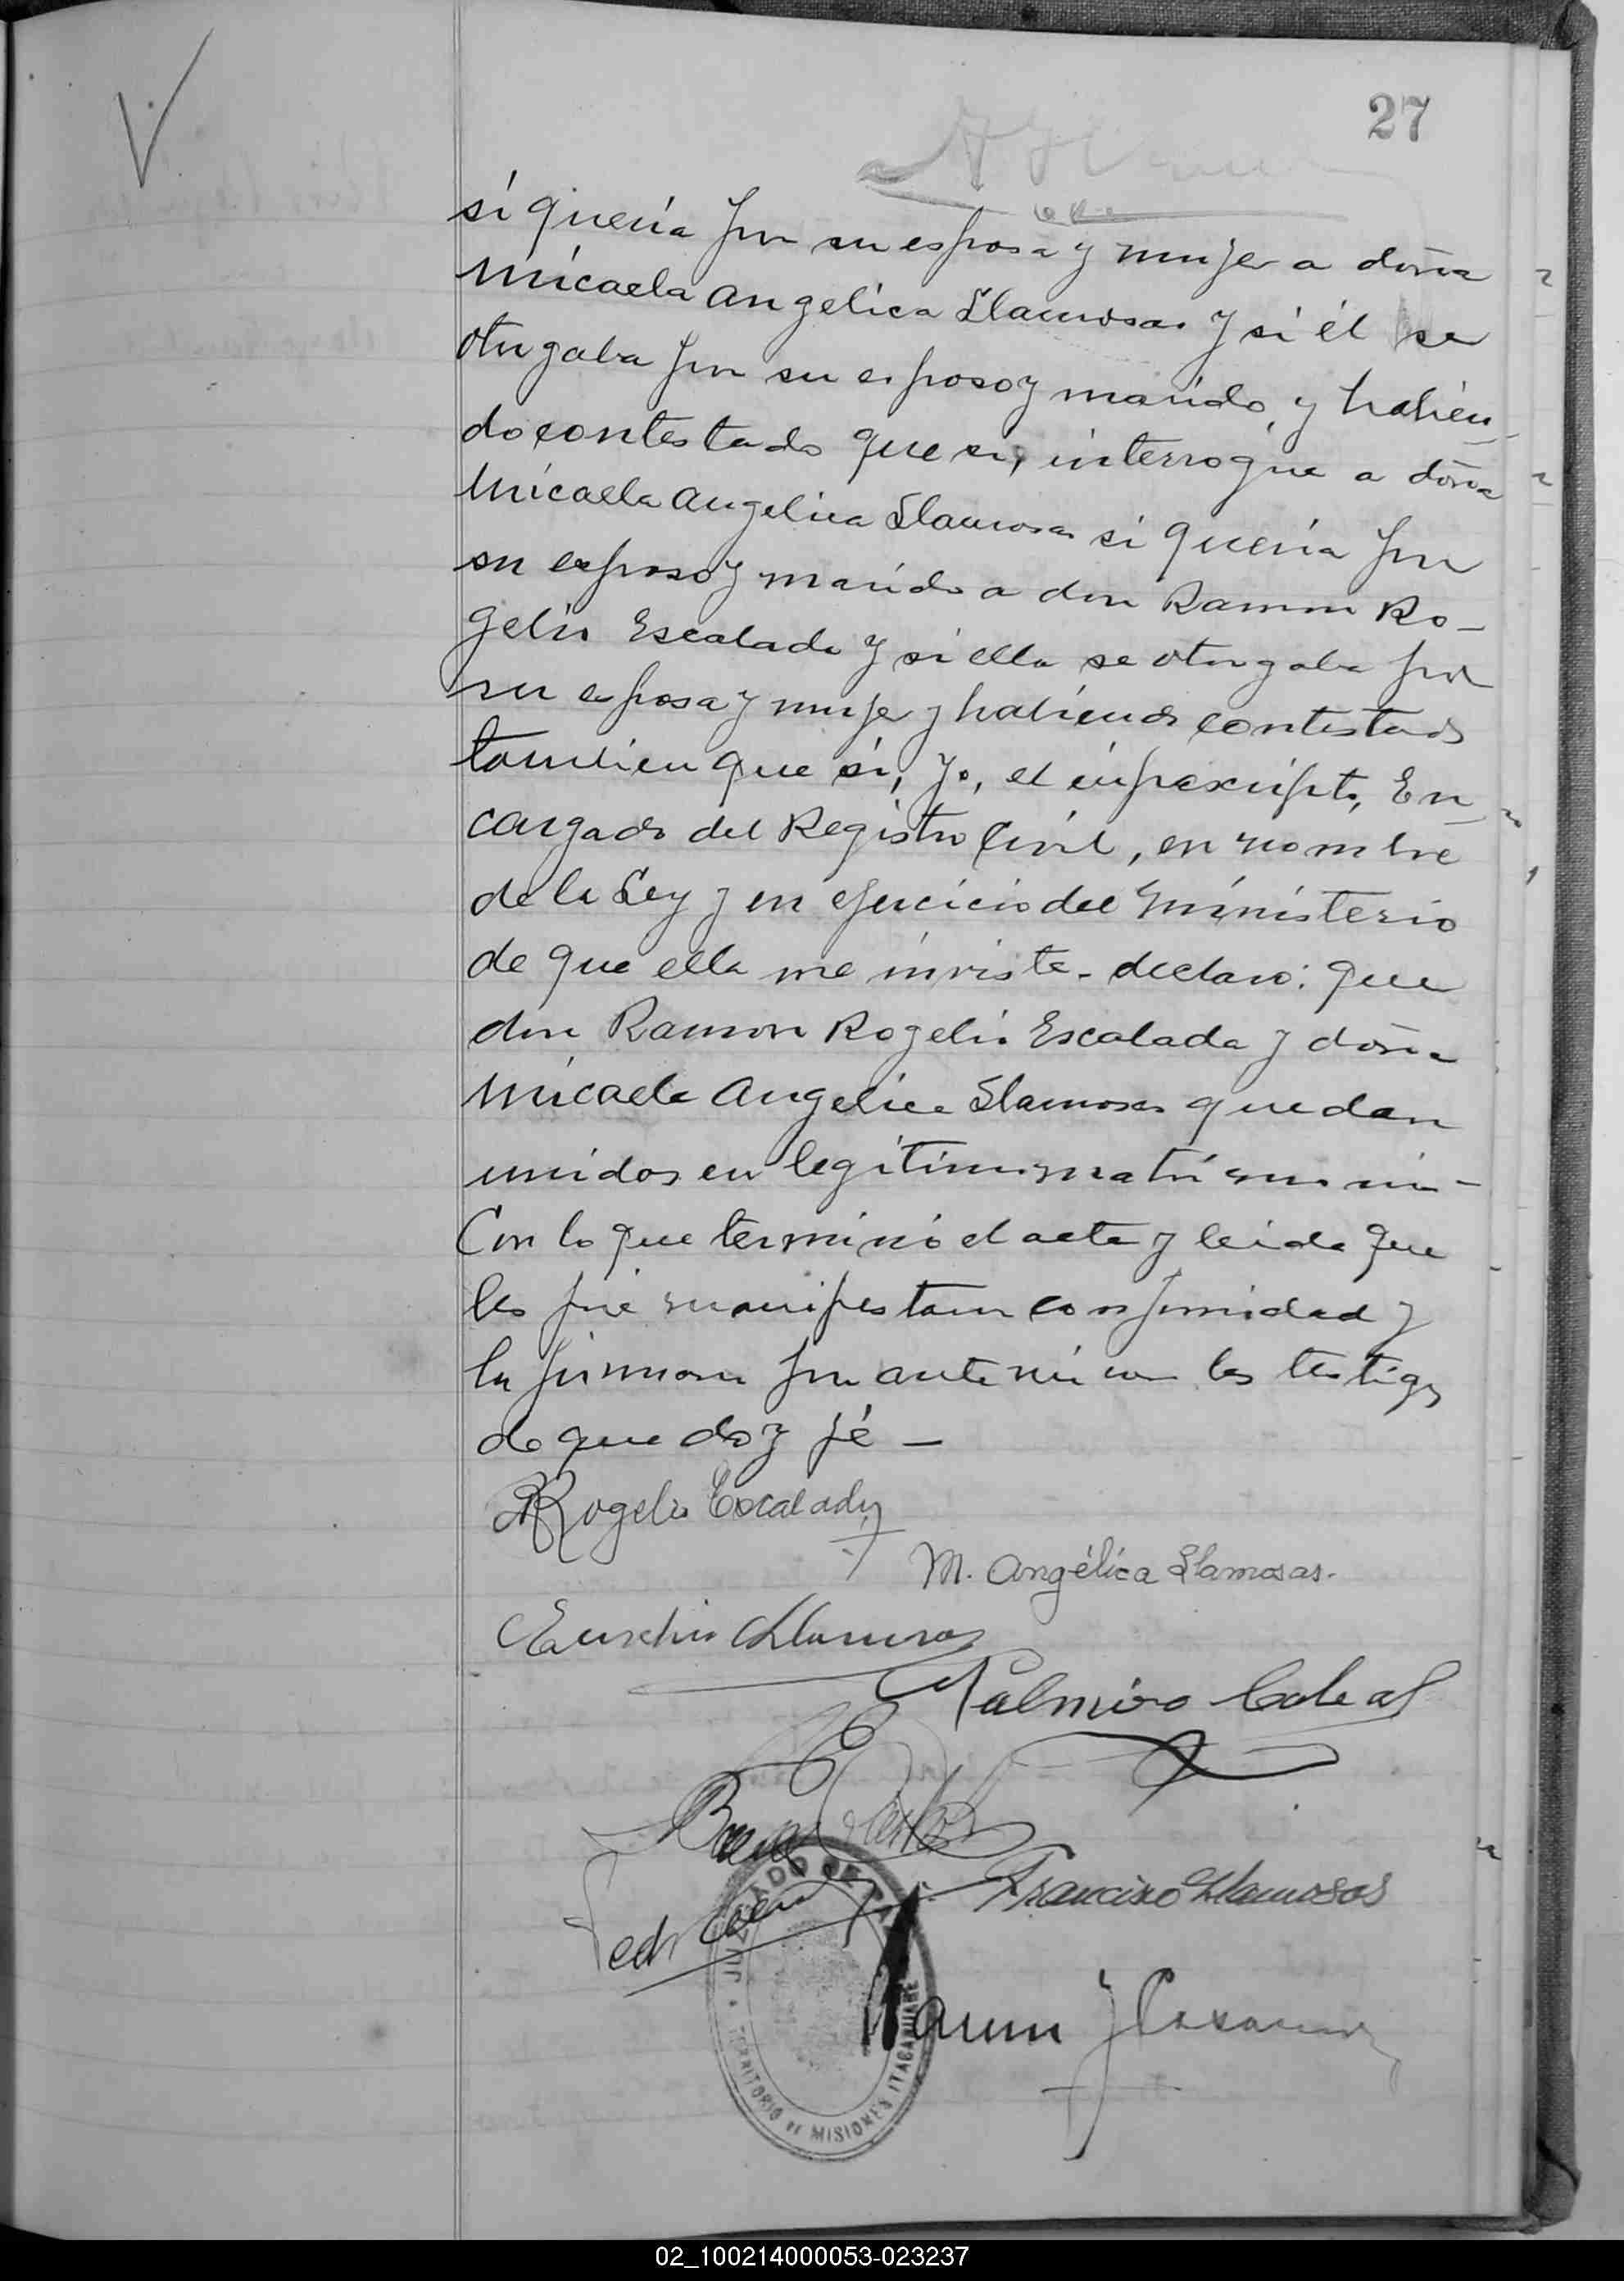 27
si quería por su esposa y mujer a doña
Micaela Angelica Llamosas y si él se
otorgaba por su esposo y marido, y habien-
do contestado que si, interrogue a doña
Micaela Angelica Llamosas si quería por
su esposo y marido a don Ramon Ro-
gelio Escalada y si ella se otorgaba por
su esposa y mujer y habiendo contestado
tambien que si, yo, el infrascripto, En-
cargado del Registro Civil, en nombre
de la Ley y en ejercicio del ministerio
de que ella me inviste - declaro: que
don Ramon Rogelio Escalada y doña
Micaela Angelica Llamosas quedan
unidos en legítimo matrimonio -
Con lo que terminó el acta y leida que
les fué manifestaron conformidad y
la firmaron por ante mi con los testigos
de que doy fé -
R Rogelio Escalada
M. Angélica Llamosas.
Eusebio Llamosas
Palmiro
Francisco Llamosas
Pedro
Ramon J
JUZGADO DE PAZ
TERRITORIO DE MISIONES ITACARUARE
02_100214000053-023237